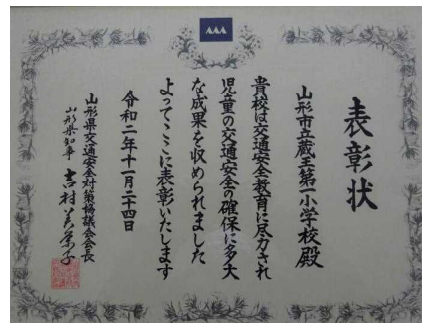 表彰状
山形市立蔵王第一小学校殿
貴校は交通安全教育に尽力され
児童の交通安全の確保に多大
な成果を収められました
よってここに表彰いたします
令和二年十一月二十四日
山形県交通安全対策協議会会長
山形県知事 吉村美栄子